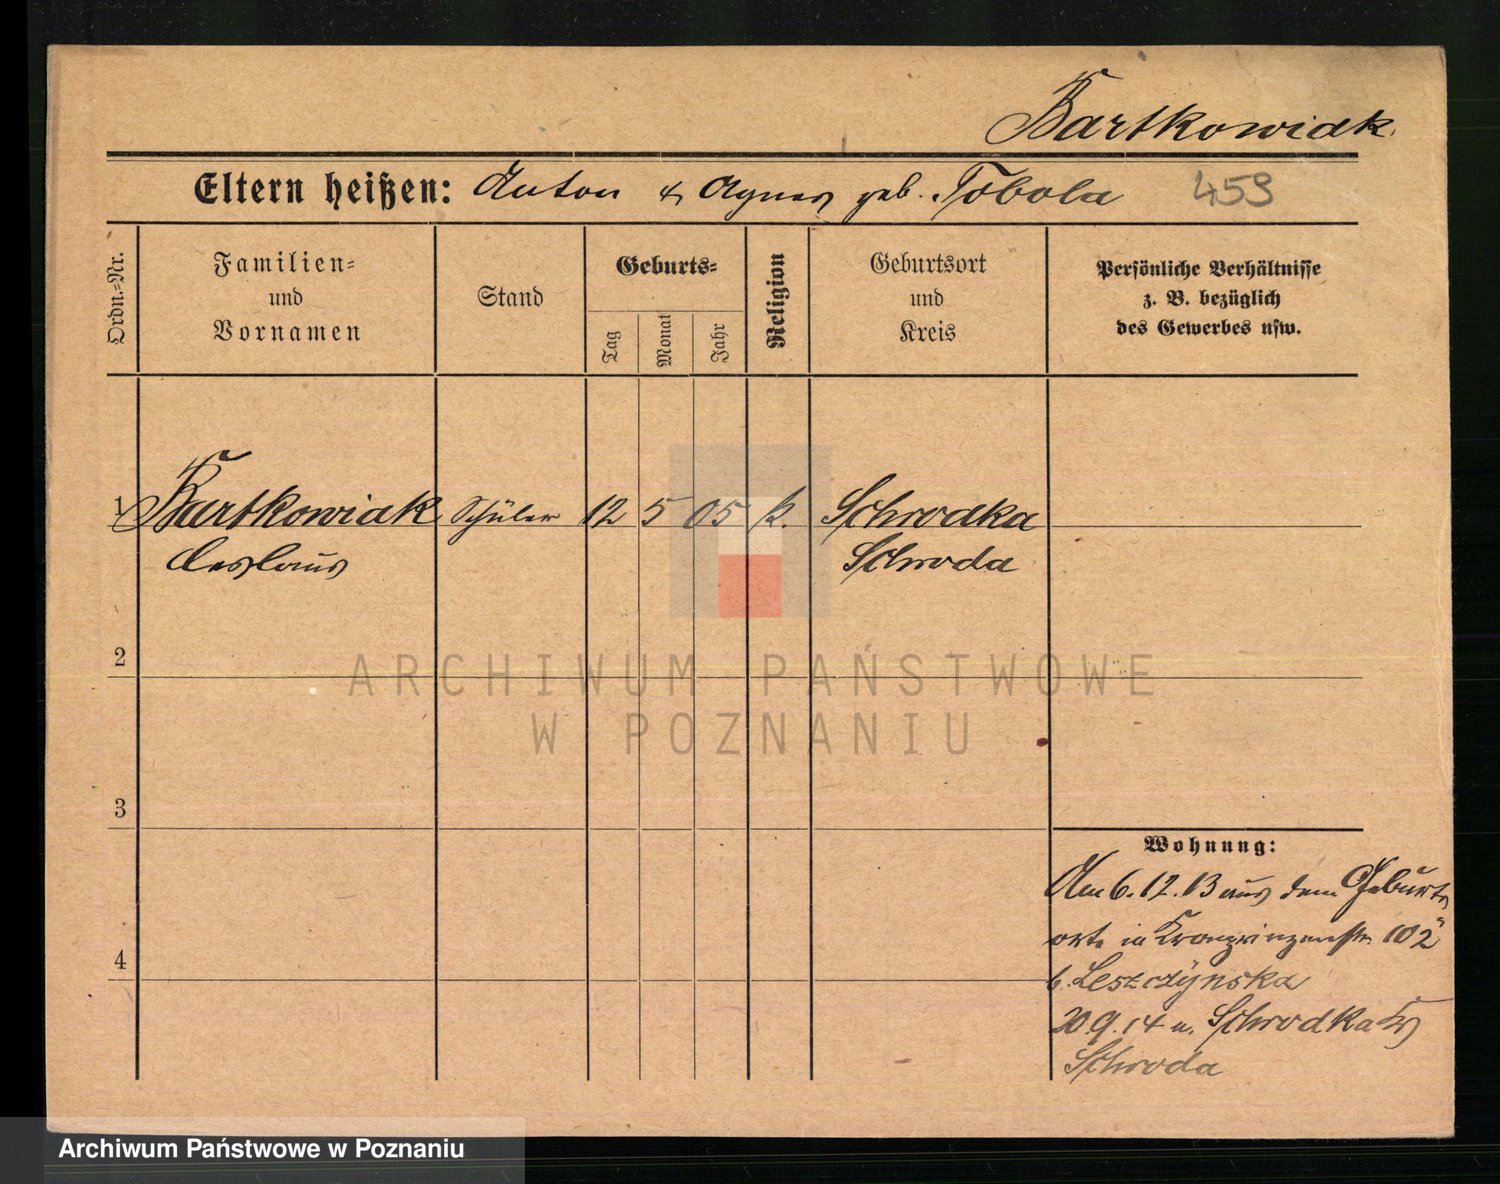 Bartkowiak.
Eltern heißen: Anton & Agnes geb. Tobola 459
Ordn.-Nr.
Familien-
und
Vornamen
Stand
Geburts-
Tag
Monat
Jahr
Religion
Geburtsort
und
Kreis
Persönliche Verhältnisse
z. B. bezüglich
des Gewerbes usw.
1 Bartkowiak Schüler 12 5 05 k. Schrodka
Ceslaus Schroda
2
3
4
Wohnung:
Am 6.12.13 aus dem Geburts
orte in Kronprinzenstr. 102
b. Leszczynska
20.9.14 n. Schrodka Kr
Schroda
ARCHIWUM PAŃSTWOWE
W POZNANIU
Archiwum Państwowe w Poznaniu